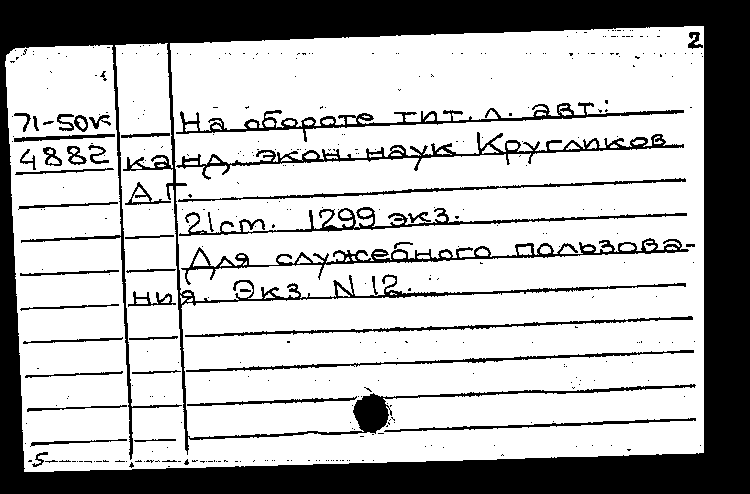 2
71-50к На обороте тит. л. авт.:
4882 канд. экон. наук Кругликов
А.Г.
21 cm. 1299 экз.
Для служебного пользова-
ния. Экз. N 12.
5